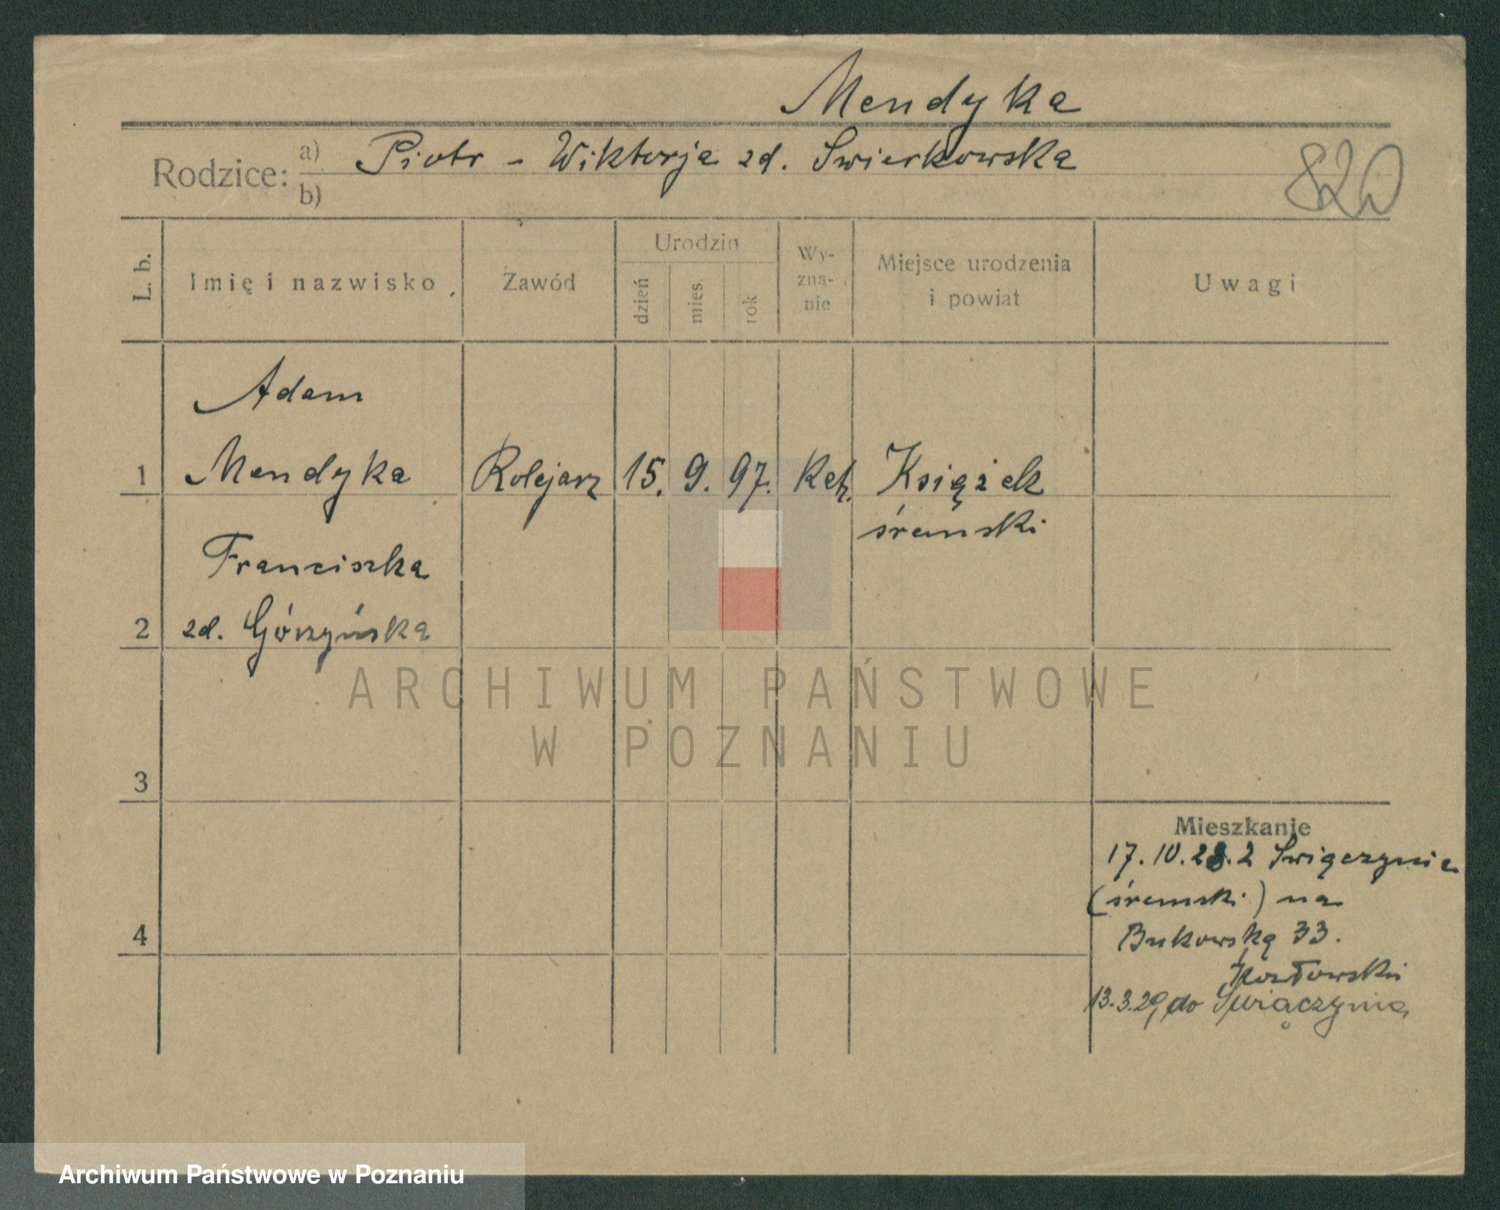 Mendyka
Rodzice: a) Piotr - Wiktorja zd. Swierkowska
b)
820
L. b.
Imię i nazwisko
Zawód
Urodzin
dzień
mies.
rok
Wy-
zna-
nie
Miejsce urodzenia
i powiat
Uwagi
Adam
1 Mendyka Kolejarz 15. 9. 97. Kat. Książek
śremski
Franciszka
2 zd. Górzyńska
ARCHIWUM PAŃSTWOWE
W POZNANIU
3
Mieszkanie
17.10.28. z Swiączynia
(śremski) na
4 Bukowską 33.
Kozłowski
13.3.29 do Swiączynia
Archiwum Państwowe w Poznaniu